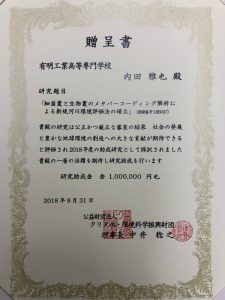 贈呈書
有明工業高等専門学校
内田 雅也 殿
研究題目
「細菌叢と生物叢のメタバーコーディング解析に
よる新規河川環境評価法の確立」
貴殿の研究は公正かつ厳正な審査の結果 社会の発展
と豊かな地球環境の創造への大きな貢献が期待できる
と評価され2018年度の助成研究として採択されました
貴殿の一層の活躍を期待し研究助成を行います
研究助成金 金 1,000,000 円也
2018年8月31日
公益財団法人
クリタ水・環境科学振興財団
理事長 中井 稔之